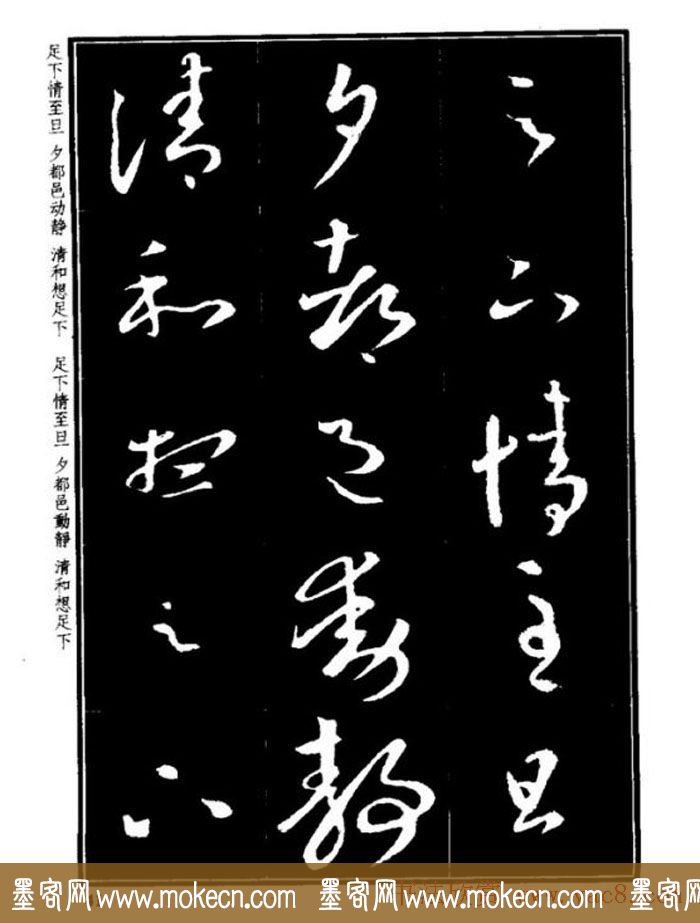 足下情至旦
夕都邑動静
清和想足下
足下情至旦 夕都邑动静 清和想足下 足下情至旦 夕都邑動靜 清和想足下
墨客网 www.mokecn.com 墨客网 www.mokecn.com 墨客网